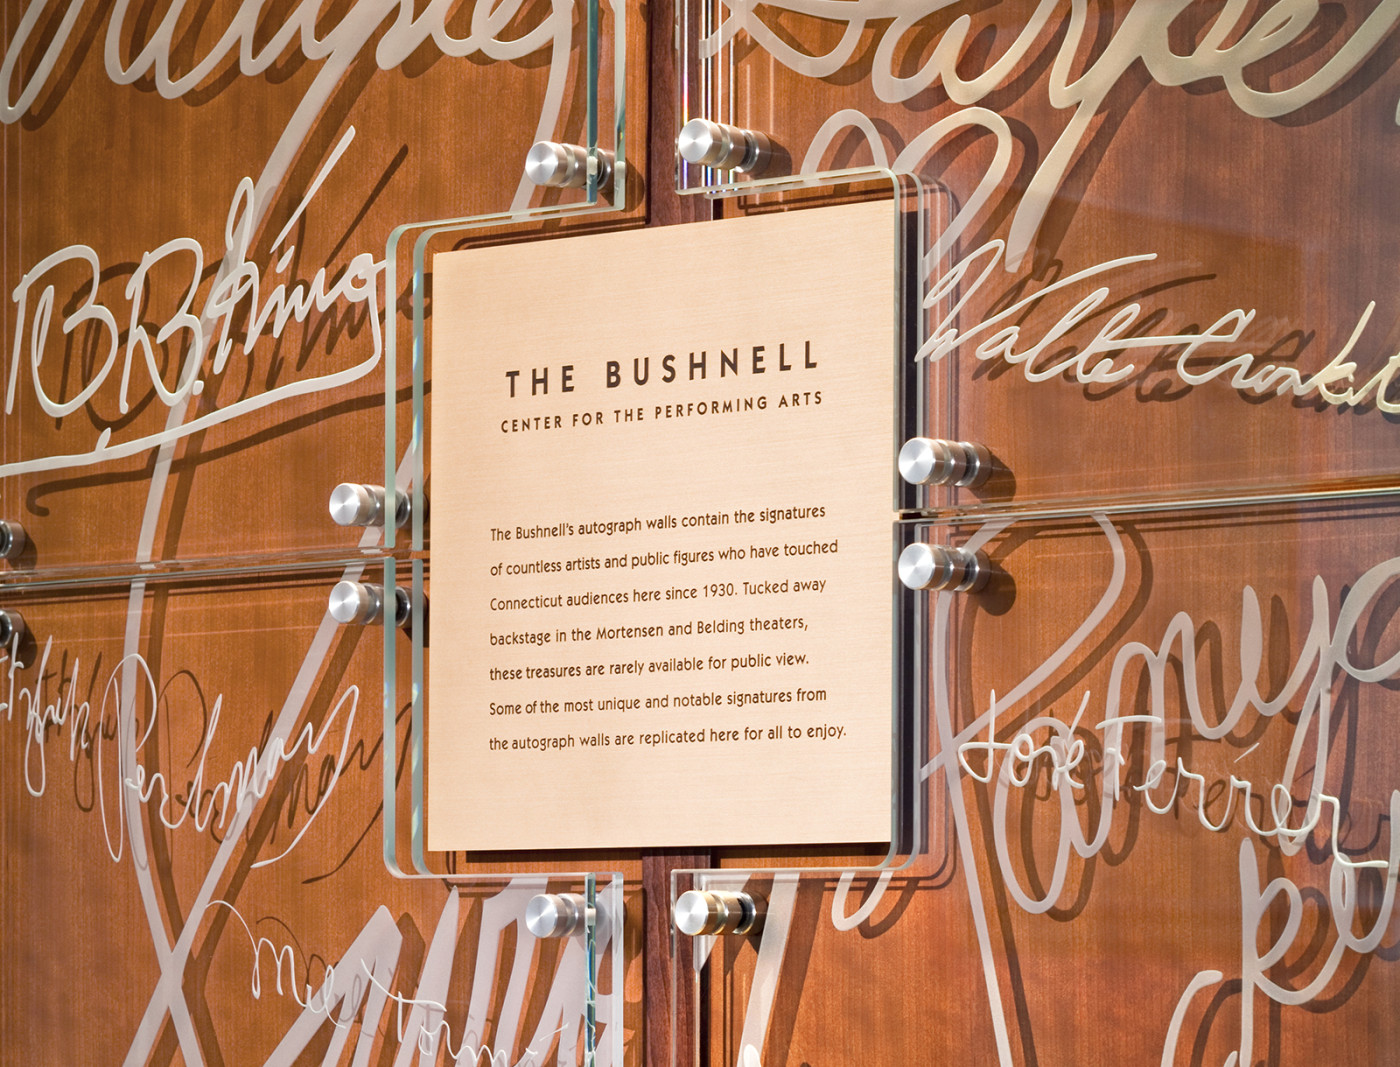 B.B. King
Walter Cronkite
THE BUSHNELL
CENTER FOR THE PERFORMING ARTS
The Bushnell's autograph walls contain the signatures
of countless artists and public figures who have touched
Connecticut audiences here since 1930. Tucked away
backstage in the Mortensen and Belding theaters,
these treasures are rarely available for public view.
Some of the most unique and notable signatures from
the autograph walls are replicated here for all to enjoy.
Itzhak Perlman
José Ferrer
Mel Tormé